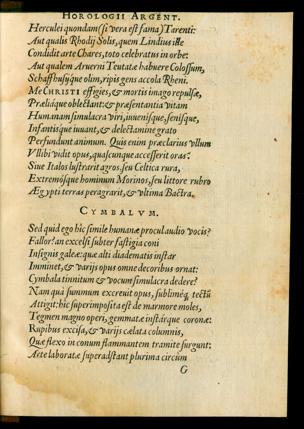 HOROLOGII ARGENT.
Herculei quondam (si vera est fama) Tarenti:
Aut qualis Rhodij Solis, quem Lindius ille
Condidit arte Chares, toto celebratus in orbe:
Aut qualem Aruerni Teutatẽ habuere Colossum,
Schaffhusyque olim, ripis gens accola Rheni.
Me CHRISTI effigies, & mortis imago repulsæ,
Præsidijque oblectant: & præsentantia vitam
Humanam simulacra viri, iuuenisque, senisque,
Infantisque iuuant, & delectamine grato
Perfundunt animum. Quis enim præclarius vllum
Vllibi vidit opus, quascunque accesserit oras?
Siue Italos lustrarit agros, seu Celtica rura,
Extremosque hominum Morinos, seu littore rubro
Ægypti terras peragrarit, & vltima Bactra.
CYMBALVM.
Sed quid ego hic simile humanæ procul audio vocis?
Fallor? an excelsi subter fastigia coni
Insignis galeæ: quæ alti diadematis instar
Imminet, & varijs opus omne decoribus ornat:
Cymbala tinnitum & vocum simulacra dedere?
Nam quà summum excreuit opus, sublimeq́ tectũ
Attigit: hic superimposita est de marmore moles,
Tegmen magno operi, gemmatæ instárque coronæ:
Rupibus excisa, & varijs cælata columnis,
Quæ flexo in conum flammantem tramite surgunt:
Arte laboratæ superadstant plurima circum
G